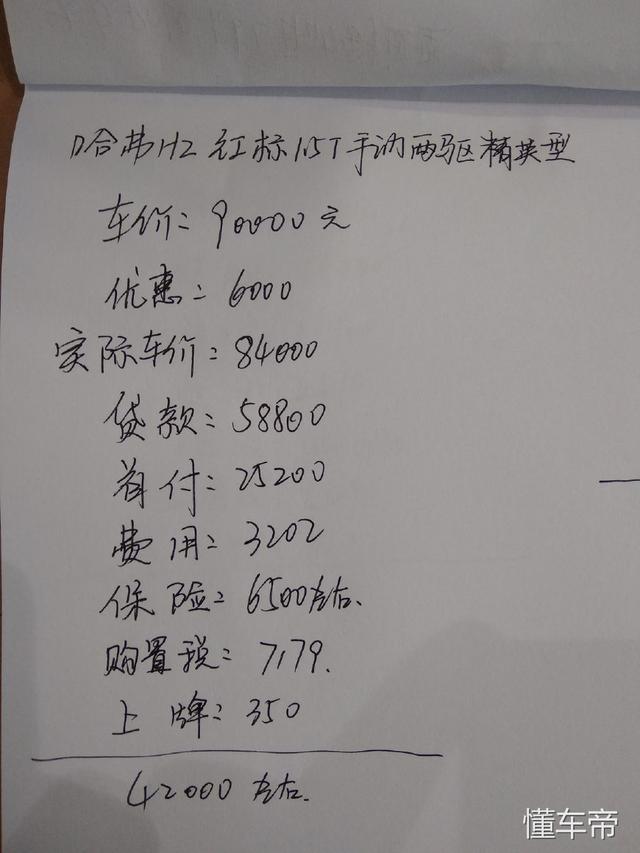 哈弗H2 红标1.5T手动两驱精英型
车价：90000元
优惠：6000
实际车价：84000
贷款：58800
首付：25200
费用：3202
保险：6500左右.
购置税：7179.
上牌：350
42000左右.
懂车帝